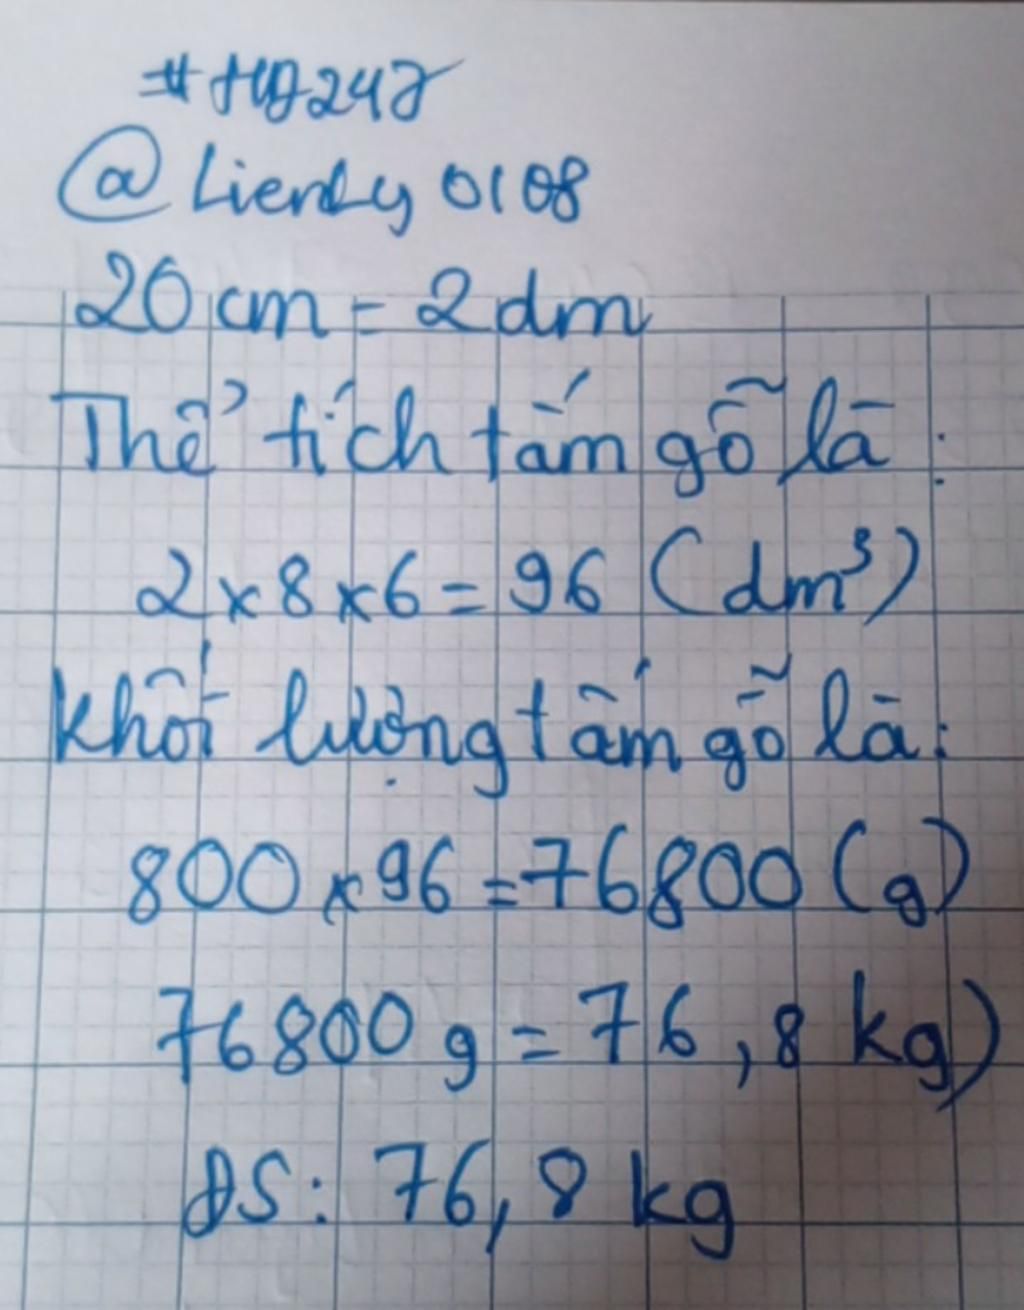 #HD247
@Lienly0108
20 cm = 2 dm
Thể tích tấm gỗ là:
2 x 8 x 6 = 96 (dm³)
Khối lượng tấm gỗ là:
800 x 96 = 76800 (g)
76800 g = 76,8 kg)
ĐS: 76,8 kg